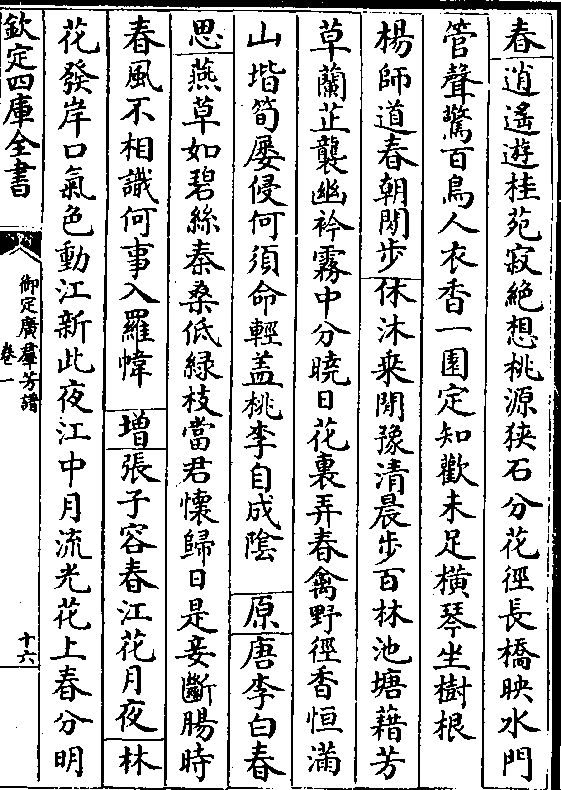 春逍遙遊桂苑寂絶想桃源狹石分花徑長橋映水門
管聲驚百鳥人衣香一園定知歡未足橫琴坐樹根
楊師道春朝閒步休沐乗閒豫清晨步百林池塘藉芳
草蘭芷襲幽衿霧中分曉日花裏弄春禽野徑香恒滿
山堦筍屡侵何須命輕盖桃李自成陰 原唐李白春
思燕草如碧絲秦桑低緑枝當君懷歸日是妾斷腸時
春風不相識何事入羅幃 增張子容春江花月夜林
花發岸口氣色動江新此夜江中月流光花上春分明
欽定四庫全書
御定廣羣芳譜
卷一
十六